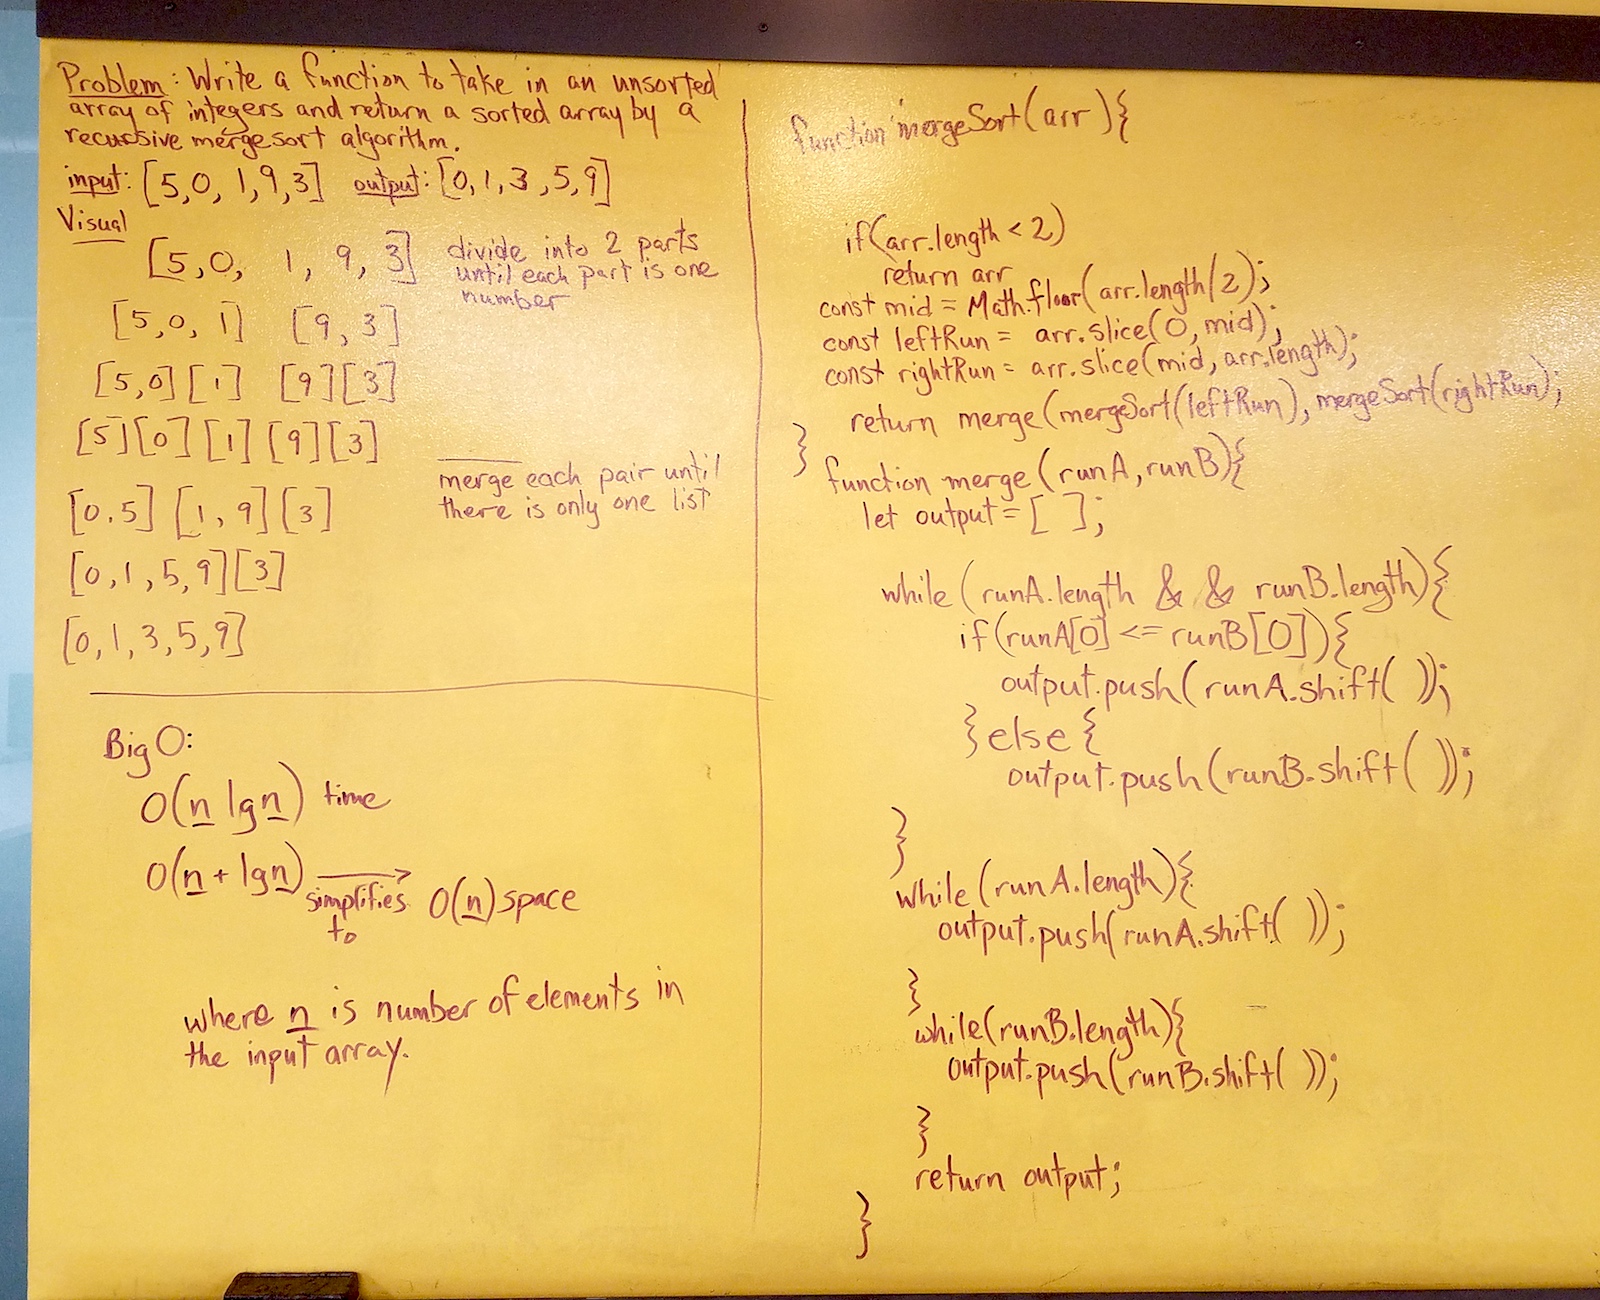 Problem: Write a function to take in an unsorted
array of integers and return a sorted array by a
recursive mergesort algorithm.
input: [5,0, 1,9,3] output: [0,1,3,5,9]
Visual
[5,0, 1, 9, 3] divide into 2 parts
until each part is one
number
[5,0, 1] [9, 3]
[5,0] [1] [9] [3]
[5] [0] [1] [9] [3]
merge each pair until
there is only one list
[0.5] [1, 9] [3]
[0,1,5,9] [3]
[0,1,3,5,9]
Big O:
O(n lg n) time
O(n + lg n) simplifies to O(n) space
where n is number of elements in
the input array.
function mergeSort(arr){
if(arr.length < 2)
return arr
const mid = Math.floor(arr.length/2);
const leftRun = arr.slice(0, mid);
const rightRun = arr.slice(mid, arr.length);
return merge(mergeSort(leftRun), mergeSort(rightRun);
}
function merge(runA, runB){
let output = [ ];
while (runA.length && runB.length){
if(runA[0] <= runB[0]){
output.push(runA.shift( ));
} else {
output.push(runB.shift( ));
}
while (runA.length){
output.push(runA.shift( ));
}
while(runB.length){
output.push(runB.shift( ));
}
return output;
}